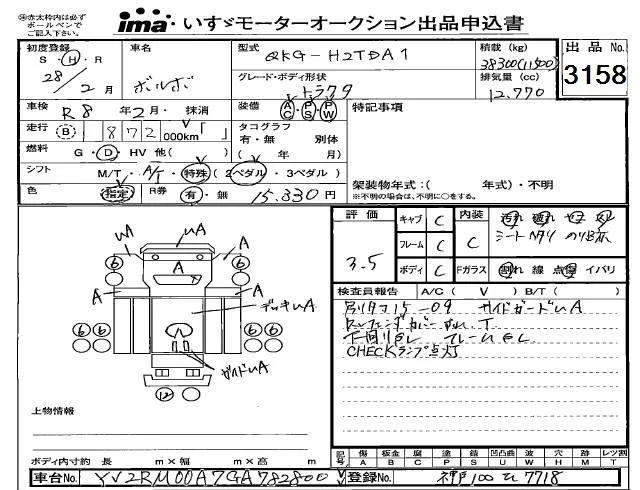 ※赤太枠内は必ず
ボールペンで
ご記入下さい。
ima いすゞモーターオークション出品申込書
初度登録 車名 型式 QKG-H2TDA1 積載 (kg) 出品No.
S・H・R 38300(11500)
28/2月 ボルボ グレード・ボディ形状 トラクタ 排気量 (cc) 12.770 3158
車検 R8年2月・抹消 装備 AC・PS・PW 特記事項
走行 B 1872 000km「 」 タコグラフ 有・無 別体
燃料 G・D・HV 他( ) ( 年 月)
シフト M/T・A/T・特殊 (2ペダル・3ペダル) 架装物年式:( 年式)・不明
色 (指定) R券 有・無 15.330円 ※不明の場合は、不明に○をする。
評価 キャブ C 内装
シートヘタリ
フレーム C C
3.5
ボディ C Fガラス C 割れ 線 点傷 イバリ
検査員報告 A/C( V ) B/T( )
15-09 サイドガードUA
T
下回り フレーム
CHECKランプ点灯
UA UA A
6 A 6
A A
デッキUA
6 6 A 6 6
ガイドUA
12
上物情報
ボディ内寸約 長 m×幅 m×高 m
記号 傷 板金 腐 塗 錆 凹凸曲 要 穴 跡 レツ割
A B C P S U W H M T
車台No. YV2RM00A7GA782800 登録No. 神戸100 て 7718